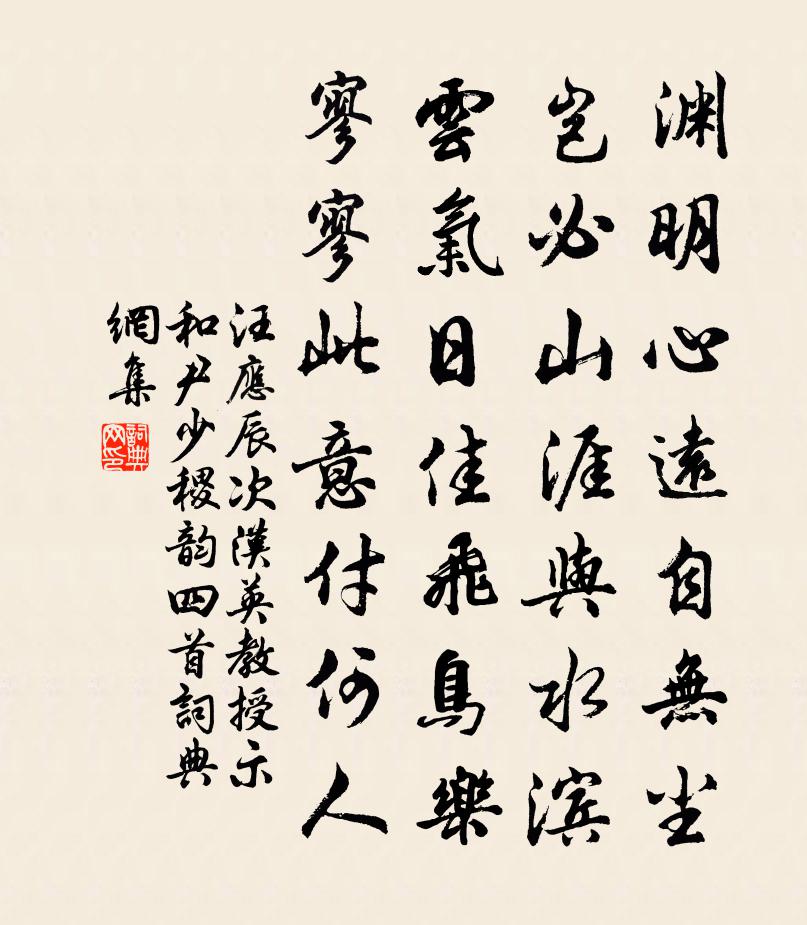 渊明心遠自無尘
岂必山涯與水滨
雲氣日佳飛鳥樂
寥寥此意付何人
汪應辰次漢英教授示
和尹少稷韵四首詞典
網集
詞典
网印